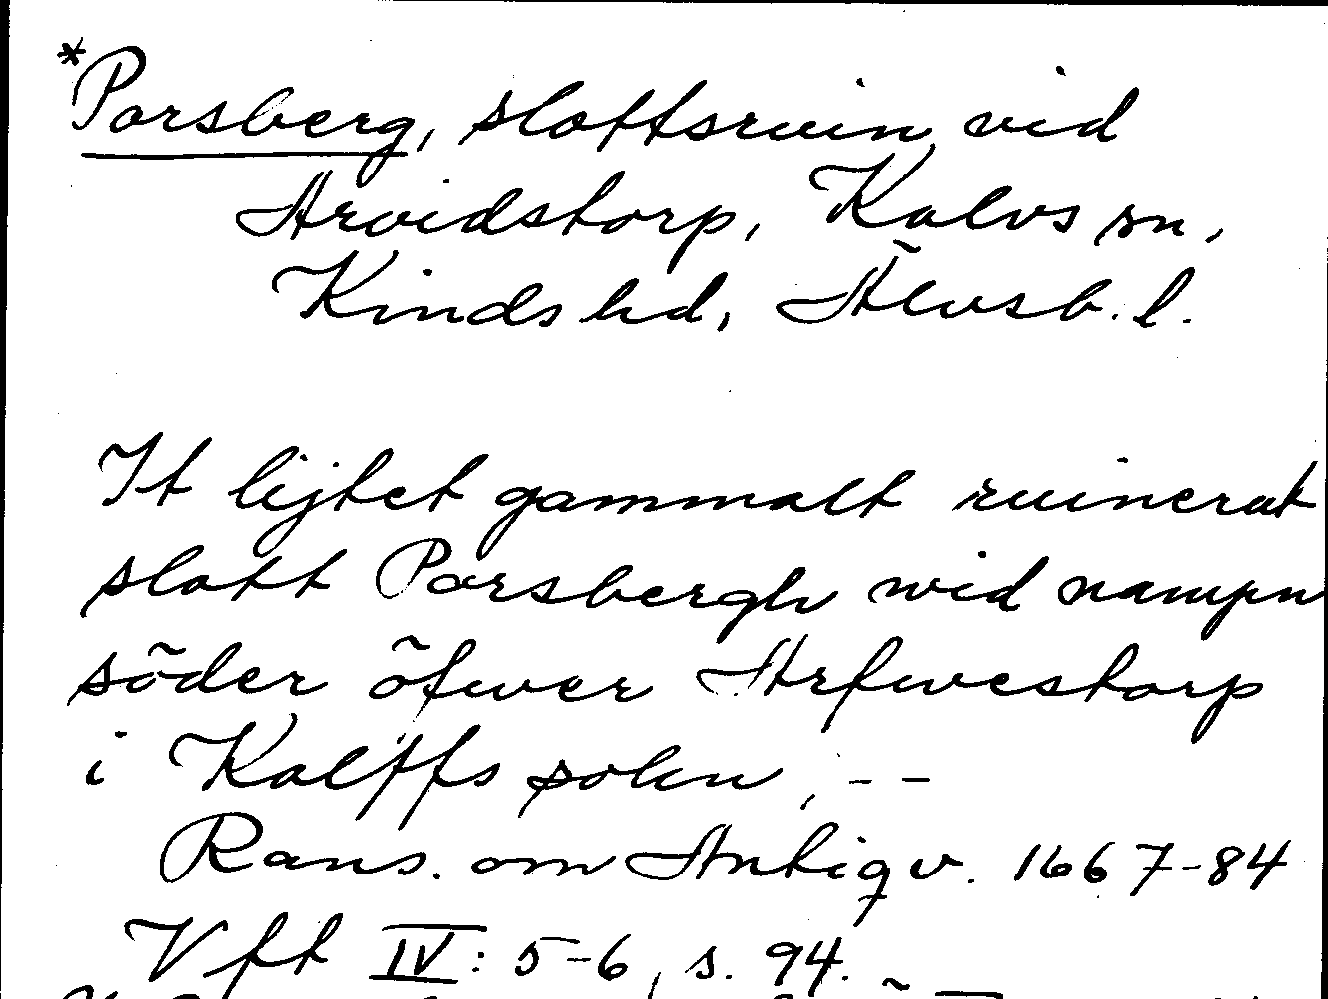 *Porsberg, slottsruin vid
Arvidstorp, Kalvs sn,
Kinds hd, Älvsb. l.
It lijtet gammalt ruinerat
slott Porsbergh wid nampn
söder öfwer Arfwestorp
i Kalffs sokn, --
Rans. om Antiqv. 1667-84
Vftt IV: 5-6, s. 94.